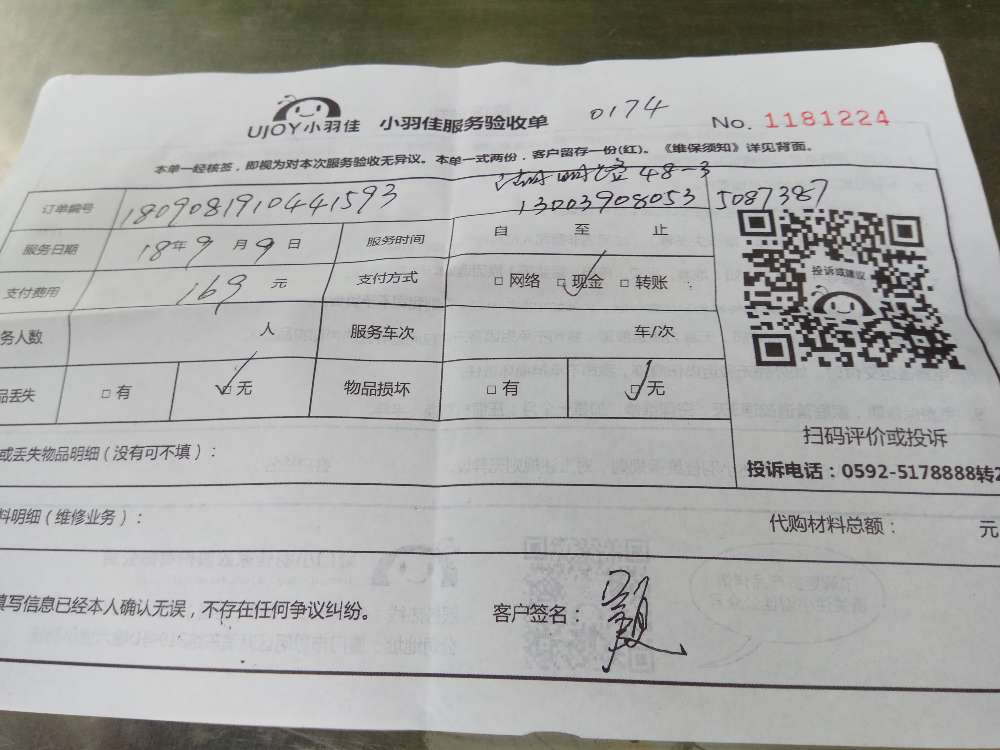 UJOY小羽佳 小羽佳服务验收单 0174 No. 1181224
本单一经核签，即视为对本次服务验收无异议。本单一式两份，客户留存一份(红)。《维保须知》详见背面。
48-3
订单编号 1809081910441593 13003908053 5087387
服务日期 18年9月9日 服务时间 自 至 止
支付费用 169 元 支付方式 □网络 □现金 □转账
务人数 人 服务车次 车/次
投诉或建议
品丢失 □有 □无 物品损坏 □有 □无
扫码评价或投诉
或丢失物品明细（没有可不填）：
投诉电话：0592-5178888转2
料明细（维修业务）： 代购材料总额： 元
填写信息已经本人确认无误，不存在任何争议纠纷。 客户签名：